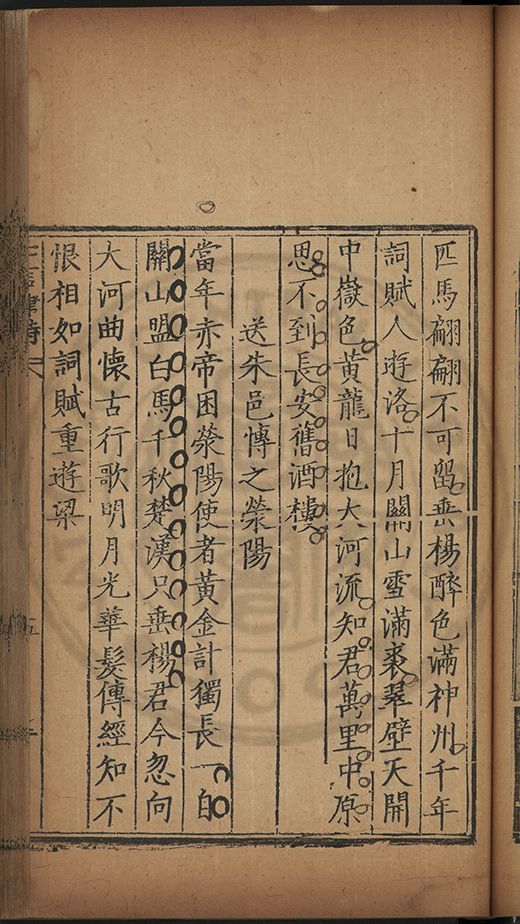 匹馬翩翩不可留垂楊醉色滿神州千年
詞賦人遊洛十月關山雪滿裘翠壁天開
中嶽色黃龍日抱大河流知君萬里中原
思不到長安舊酒樓
送朱邑愽之滎陽
當年赤帝困滎陽使者黃金計獨長一自
關山盟白馬千秋楚漢只垂楊君今忽向
大河曲懷古行歌明月光華髮傳經知不
恨相如詞賦重遊梁
律詩
五